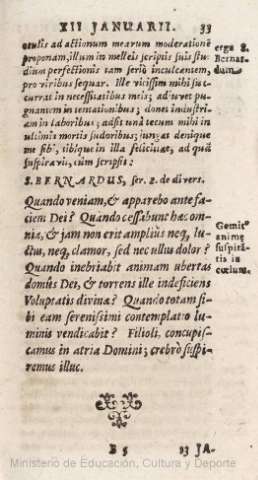 XII JANUARII. 33
oculis ad actionum mearum moderationē
proponam, illum in melleis scriptis suis stu-
dium perfectionis tam seriò inculcantem,
pro viribus sequar. Ille vicissim mihi suc-
currat in necessitatibus meis; adiuvet pu-
gnantem in tentationibus; donet industri-
am in laboribus; adsit unà tecum mihi in
ultimis mortis sudoribus; jungat denique
me sibi, tibique in illa felicitate, ad quā
suspiravit, cum scripsit:
erga S.
Bernar-
dum
S. BERNARDUS, ser. 2. de divers.
Quando veniam, & apparebo ante fa-
ciem Dei? Quando cessabunt hæc om-
nia, & jam non erit amplius neq, lu-
ctus, neq, clamor, sed nec ullus dolor?
Quando inebriabit animam ubertas
domûs Dei, & torrens ille indeficiens
Voluptatis divina? Quando totam si-
bi eam serenissimi contemplatio lu-
minis vendicabit? Filioli, concupis-
camus in atria Domini; crebrò suspi-
remus illuc.
Gemitꝰ
animę
suspirā-
tis in
cœlum.
B 5 93 JA-
Ministerio de Educación, Cultura y Deporte